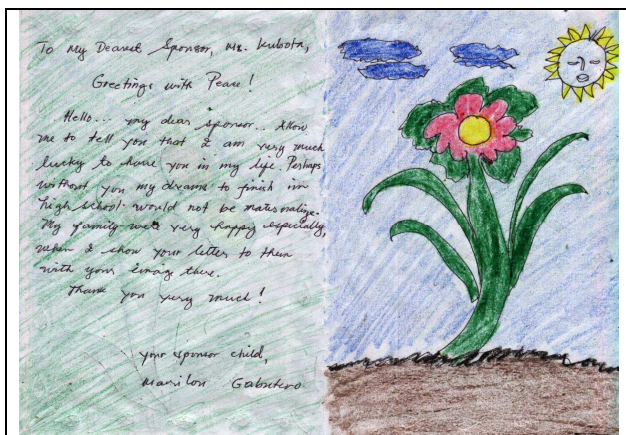 To My Dearest Sponsor, Mr. Kubota,
Greetings with Peace!
Hello... my dear sponsor.. Allow
me to tell you that I am very much
lucky to have you in my life. Perhaps
without you my dreams to finish in
high school would not be materialize.
My family were very happy especially,
when I show your letter to them
with your image there.
Thank you very much!
your sponsor child,
Marilou Gabutero